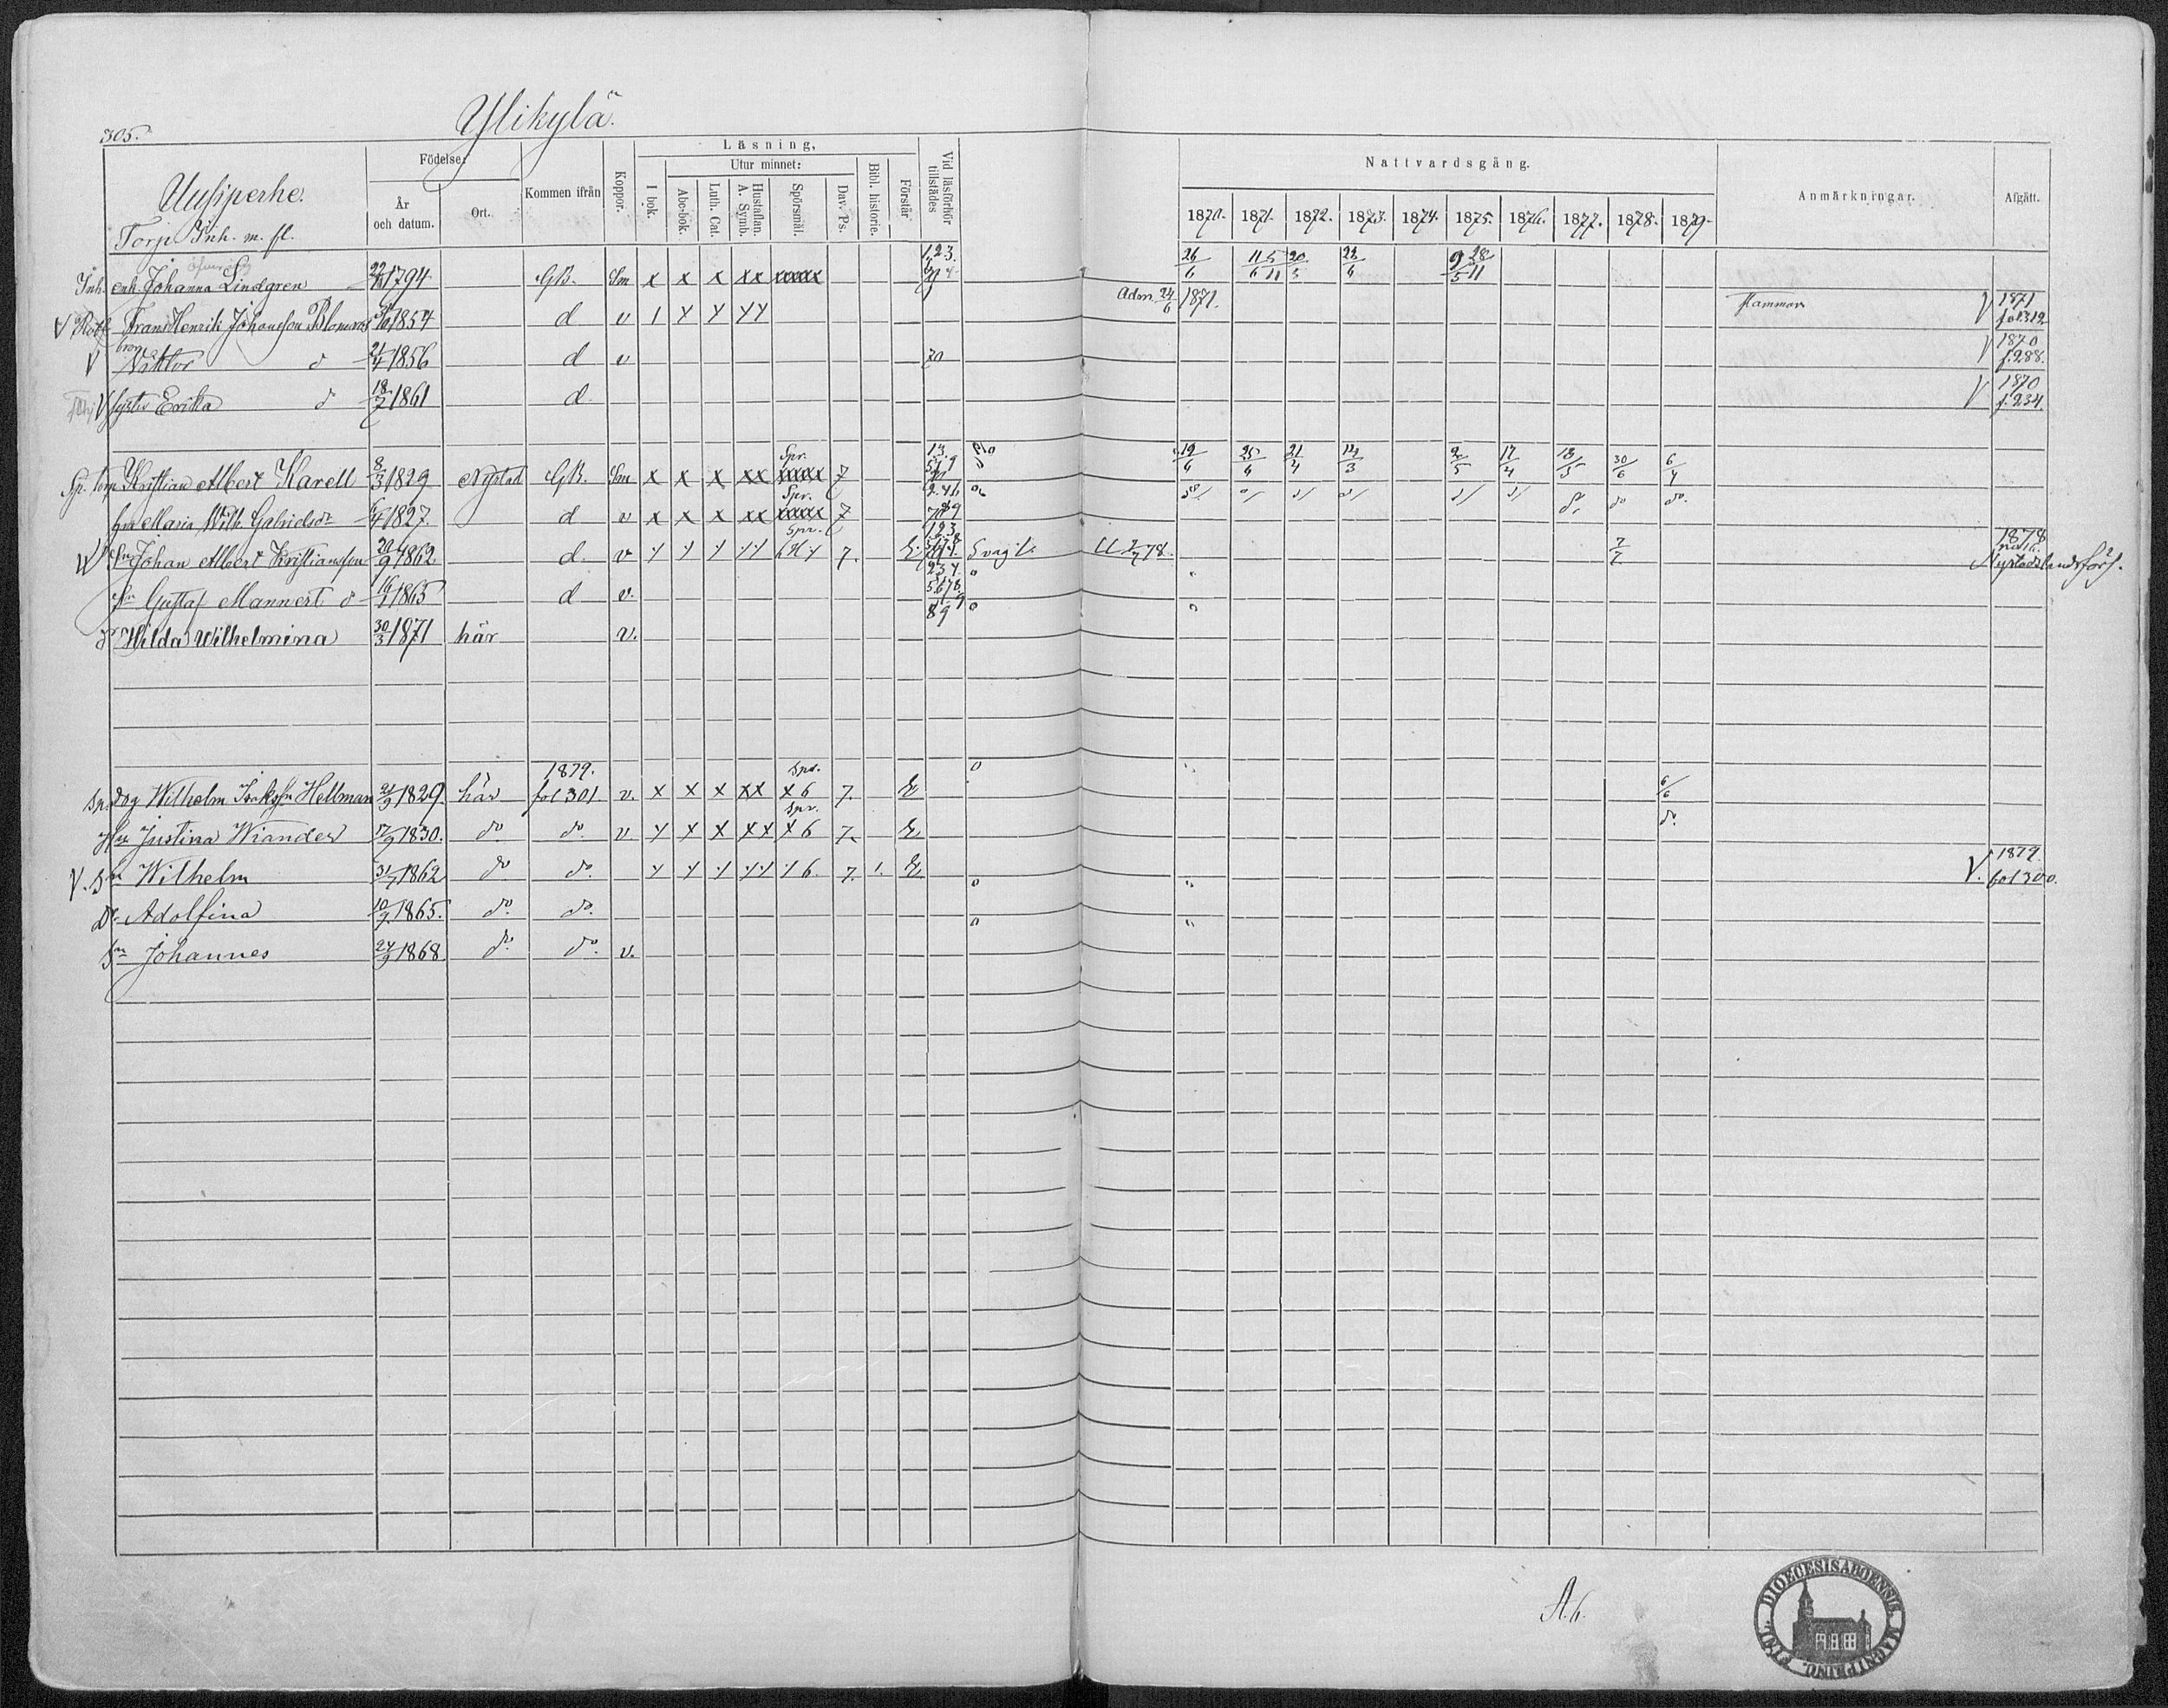 305.
Ylikylä.
Uusiperhe.
Torp. Inh. m. fl.
Födelse:
År och datum.
Ort.
Kommen ifrån
Koppor.
Läsning,
I bok.
Utur minnet:
Abc-bok.
Luth. Cat.
Hustaflan. A. Symb.
Spörsmål.
Dav. Ps.
Bibl. historie.
Förstår
Vid läsförhör tillstädes
Nattvardsgång.
1870. 1871. 1872. 1873. 1874. 1875. 1876. 1877. 1878. 1879.
Anmärkningar.
Afgått.
Inh. enk. Johanna Lindgren 1794 GB. Sm x x x xx xxxxx 26/6 11/6 5/11 20/5 22/6 9/5 28/11
Frans Henrik Johansson Blomros 1854 d v 1 Y Y YY Adm. 24/6 1871. V 1871 fol 312
V bror Viktor d 21/4 1856 d v 70 V 1870 f. 288.
V syster Erika d 18/7 1861 d V 1870 f. 234.
Sp. Torp Kristian Albert Karell 8/3 1829 Nystad GB. Sm x x x xx Spr. xxxxx 7 19/6 25/6 21/4 14/3 2/5 17/4 13/5 30/6 6/4
hu Maria Wilh. Gabrielsdr 1827. d v x x x xx Spr. xxxxx 7 do do do.
Sn Johan Albert Kristiansson 20/9 1862 d. v Y Y Y YY Spr. 7. Svagl. U 2/7 78. 7/7 1878 no 16. Nystads landsförs.
Sn Gustaf Mannert d 16/1 1865 d v.
d Hilda Wilhelmina 30/3 1871 här v. 89
sp. dog Wilhelm Isaksson Hellman 21/9 1829. här 1879. fol 301. v. x x x xx spr. x 6 7. 6/6
Hu Justina Wiander 17/9 1830. do. do. v Y x x xx spr. x 6 7. do.
V. Sn Wilhelm 31/7 1862 do do. Y Y Y YY Y 6. 7. 1. V. 1879. fol 300.
Dr Adolfina 10/9 1865. do. do.
Sn Johannes 24/9 1868 do. do. v.
A. h.
FINL. DIOECESIS ABOENSIS MAGNI PRINC.